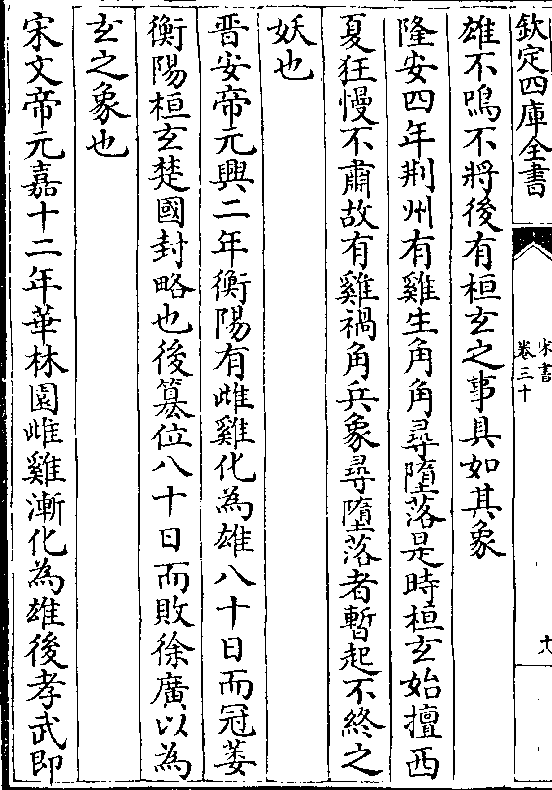 欽定四庫全書
宋書
卷三十
雄不鳴不將後有桓玄之事具如其象
隆安四年荆州有雞生角角尋墮落是時桓玄始擅西
夏狂慢不肅故有雞禍角兵象尋墮落者暫起不終之
妖也
晋安帝元興二年衡陽有雌雞化為雄八十日而冠萎
衡陽桓玄楚國封略也後簒位八十日而敗徐廣以為
玄之象也
宋文帝元嘉十二年華林園雌雞漸化為雄後孝武即